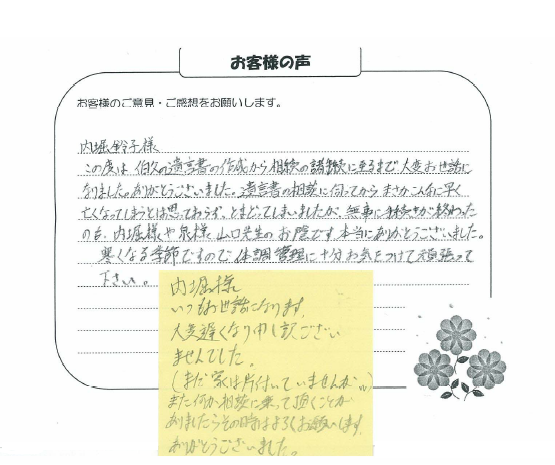 お客様の声
お客様のご意見・ご感想をお願いします。
内堀鈴子様
この度は伯父の遺言書の作成から相続の諸手続に至るまで大変お世話に
なりました。ありがとうございました。遺言書の相談に伺ってからまさかこんなに早く
亡くなってしまうとは思っておらず、とまどってしまいましたが、無事に手続きが終わった
のも、内堀様や泉様、山口先生のお陰です。本当にありがとうございました。
寒くなる季節ですので体調管理に十分お気をつけて頑張って
下さい。
内堀様
いつもお世話になります。
大変遅くなり申し訳ござい
ませんでした。
(まだ家は片付いていませんが
また何か相談に乗って頂くことが
ありましたらその時はよろしくお願いします。
ありがとうございました。